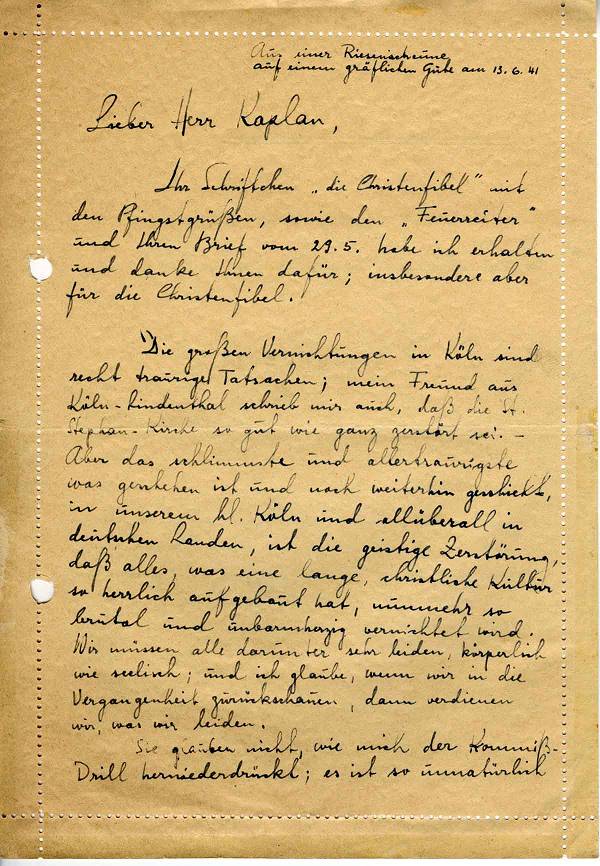 Aus einer Riesenscheune
auf einem gräflichen Gute am 13.6.41
Lieber Herr Kaplan,
Ihr Schriftchen „die Christenfibel" mit
den Pfingstgrüßen, sowie den „Feuerreiter"
und Ihren Brief vom 29.5. habe ich erhalten
und danke Ihnen dafür; insbesondere aber
für die Christenfibel.
Die großen Vernichtungen in Köln sind
recht traurige Tatsachen; mein Freund aus
Köln-Lindenthal schrieb mir auch, daß die St.
Stephan-Kirche so gut wie ganz zerstört sei. –
Aber das schlimmste und allertraurigste
was geschehen ist und noch weiterhin geschieht,
in unserem hl. Köln und allüberall in
deutschen Landen, ist die geistige Zerstörung,
daß alles, was eine lange, christliche Kultur
so herrlich aufgebaut hat, nunmehr so
brutal und unbarmherzig vernichtet wird.
Wir müssen alle darunter sehr leiden, körperlich
wie seelisch; und ich glaube, wenn wir in die
Vergangenheit zurückschauen, dann verdienen
wir, was wir leiden.
Sie glauben nicht, wie mich der Kommiß-
Drill herniederdrückt; es ist so unnatürlich